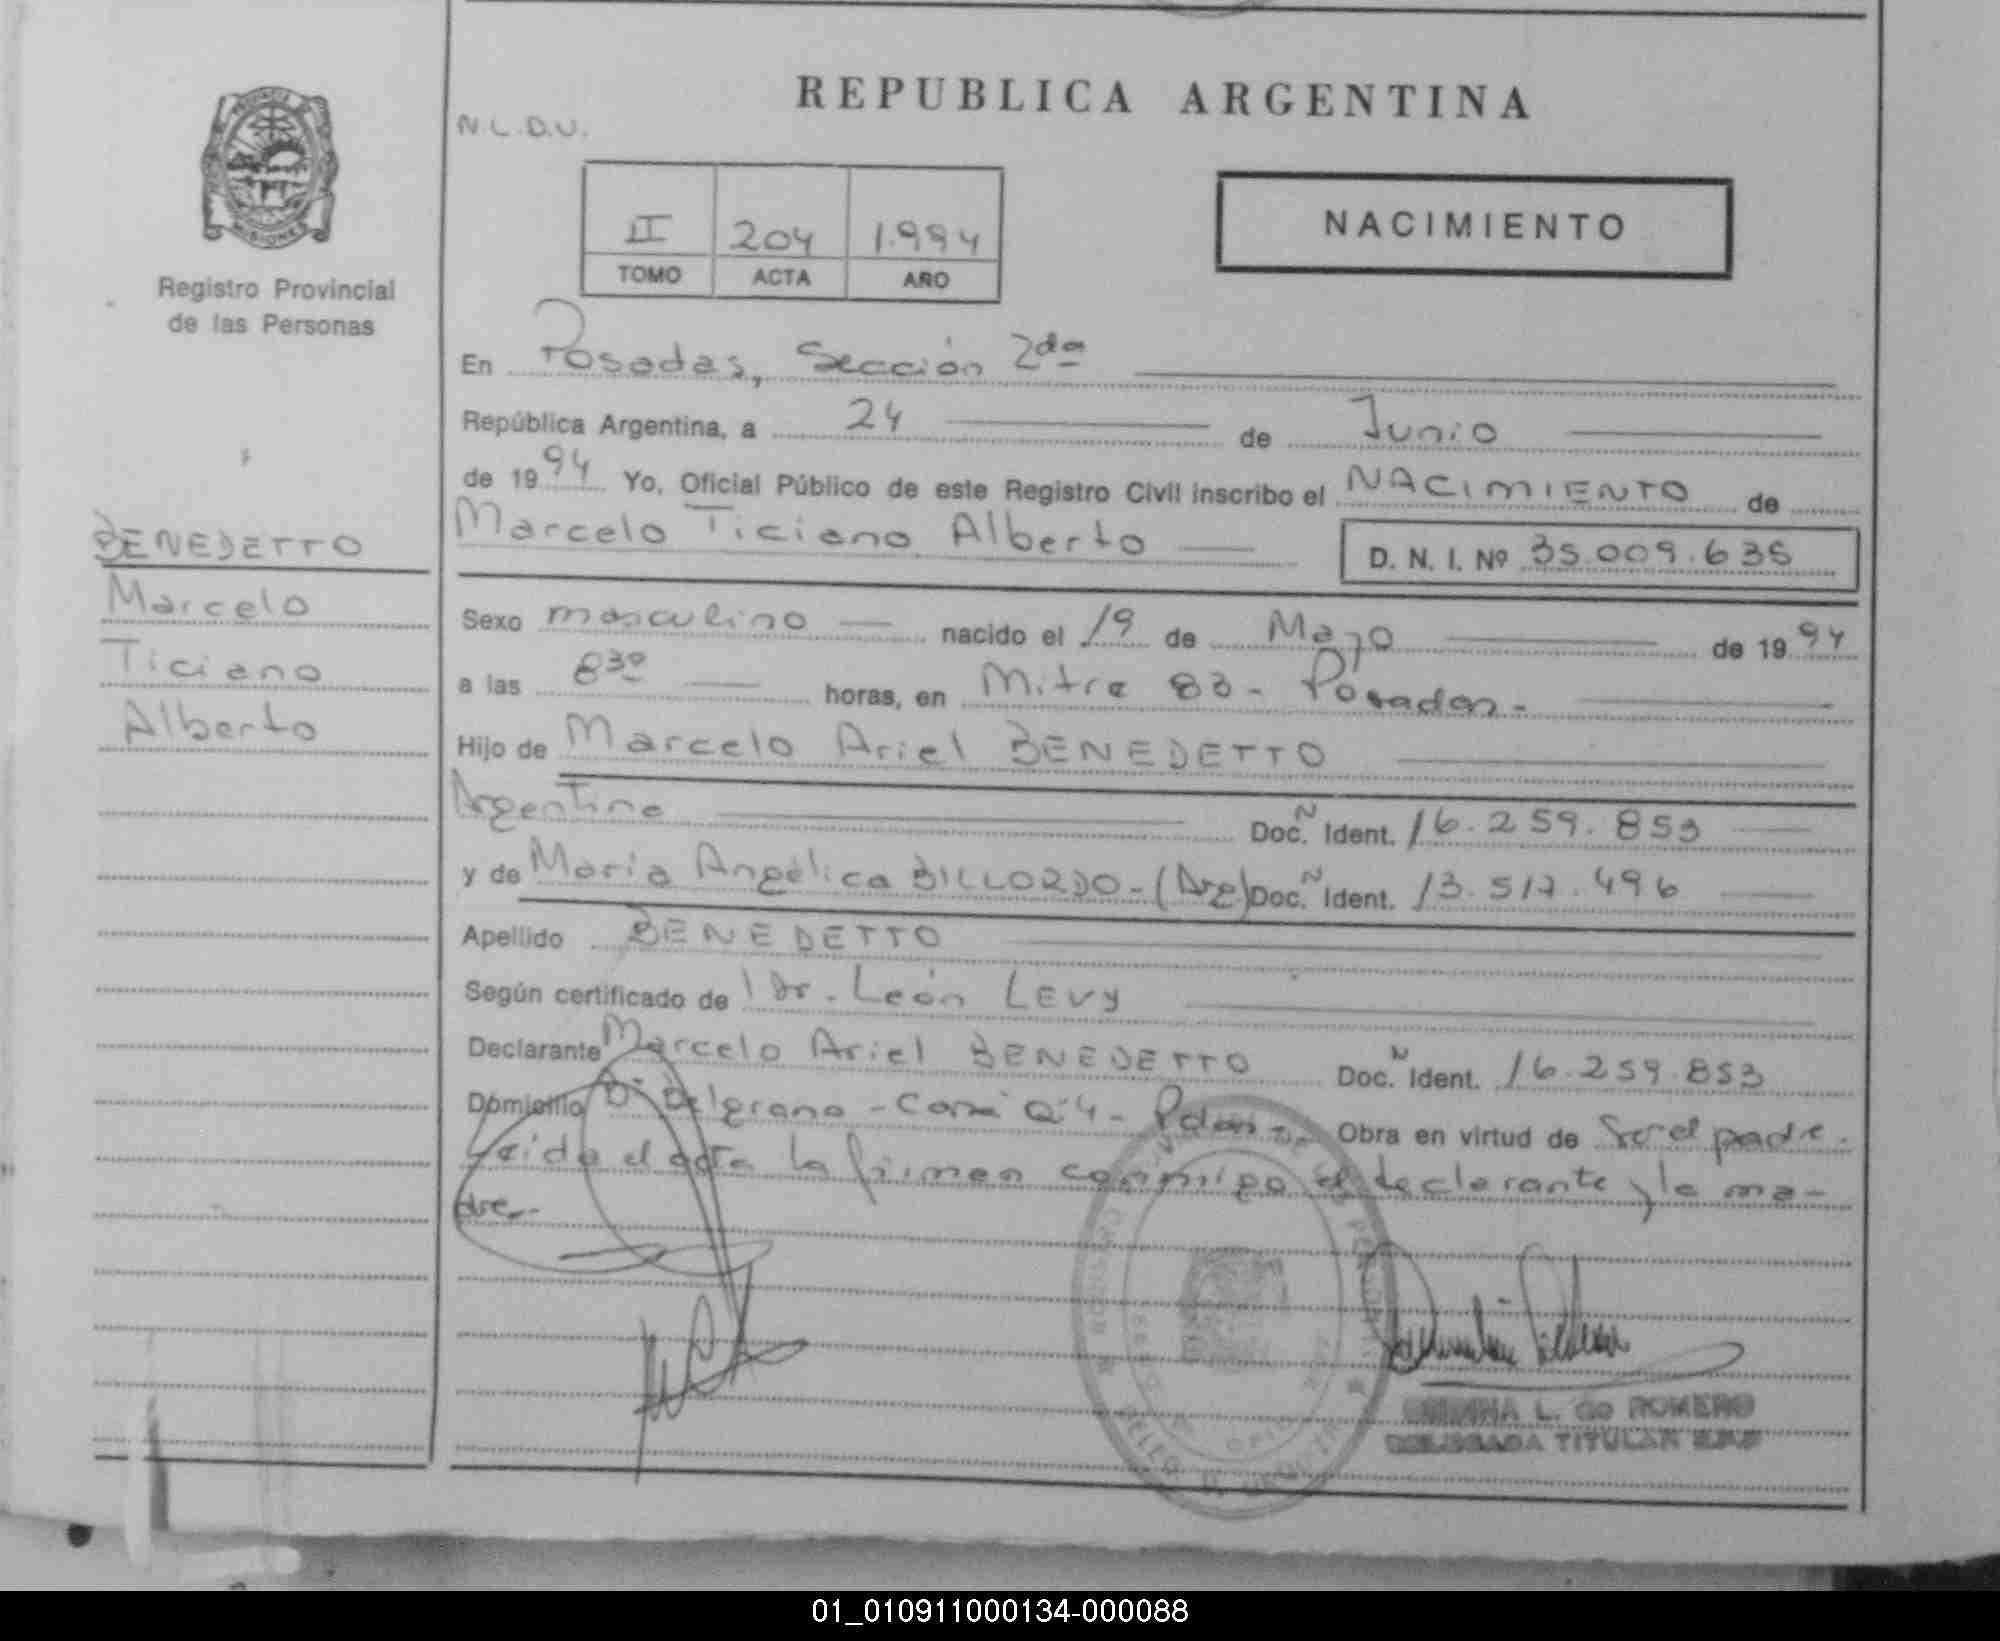 REPUBLICA ARGENTINA
N.L.D.U.
PROVINCIA
MISIONES
Registro Provincial
de las Personas
II 204 1.994
TOMO ACTA AÑO
NACIMIENTO
En Posadas, Sección 2da
República Argentina, a 24 de Junio
de 1994 Yo, Oficial Público de este Registro Civil inscribo el NACIMIENTO de
Marcelo Ticiano Alberto
D. N. I. Nº 35.009.635
BENEDETTO
Marcelo
Ticiano
Alberto
Sexo masculino nacido el 19 de Mayo de 1994
a las 830 horas, en Mitre 83- Posadas-
Hijo de Marcelo Ariel BENEDETTO
Argentino Doc. N Ident. 16.259.853
y de María Angélica BILLORDO-(Arg) Doc. N Ident. 13.517.496
Apellido BENEDETTO
Según certificado de Dr. León LEVY
Declarante Marcelo Ariel BENEDETTO Doc. N Ident. 16.259.853
Domicilio Bº Belgrano - Casa Q:4- Pdas-. Obra en virtud de Ser el padre.
Leida el acta la firman conmigo el declarante y la ma-
dre.-
L. de ROMERO
DELEGADA TITULAR
01_010911000134-000088